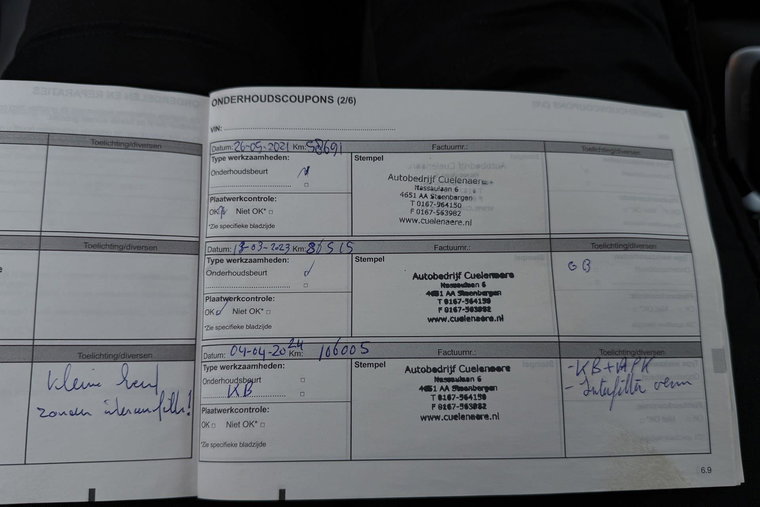 Toelichting/diversen
Toelichting/diversen
Toelichting/diversen
kleine
zonder
ONDERHOUDSCOUPONS (2/6)
VIN:
Datum: 26-05-2021 Km: 58691 Factuurnr.: Toelichting/diversen
Type werkzaamheden: Stempel
Onderhoudsbeurt
Plaatwerkcontrole:
OK Niet OK*
*Zie specifieke bladzijde
Autobedrijf Cuelenaere
Nassaulaan 6
4651 AA Steenbergen
T 0167-564150
F 0167-563982
www.cuelenaere.nl
Datum: -03-2023 Km: Factuurnr.: Toelichting/diversen
Type werkzaamheden: Stempel
Onderhoudsbeurt
Plaatwerkcontrole:
OK Niet OK*
*Zie specifieke bladzijde
Autobedrijf Cuelenaere
Nassaulaan 6
4651 AA Steenbergen
T 0167-564150
F 0167-563982
www.cuelenaere.nl
GB
Datum: 04-04-2024 Km: 106005 Factuurnr.: Toelichting/diversen
Type werkzaamheden: Stempel
Onderhoudsbeurt
KB
Plaatwerkcontrole:
OK Niet OK*
*Zie specifieke bladzijde
Autobedrijf Cuelenaere
Nassaulaan 6
4651 AA Steenbergen
T 0167-564150
F 0167-563982
www.cuelenaere.nl
- KB + APK
- Interfilter
6.9